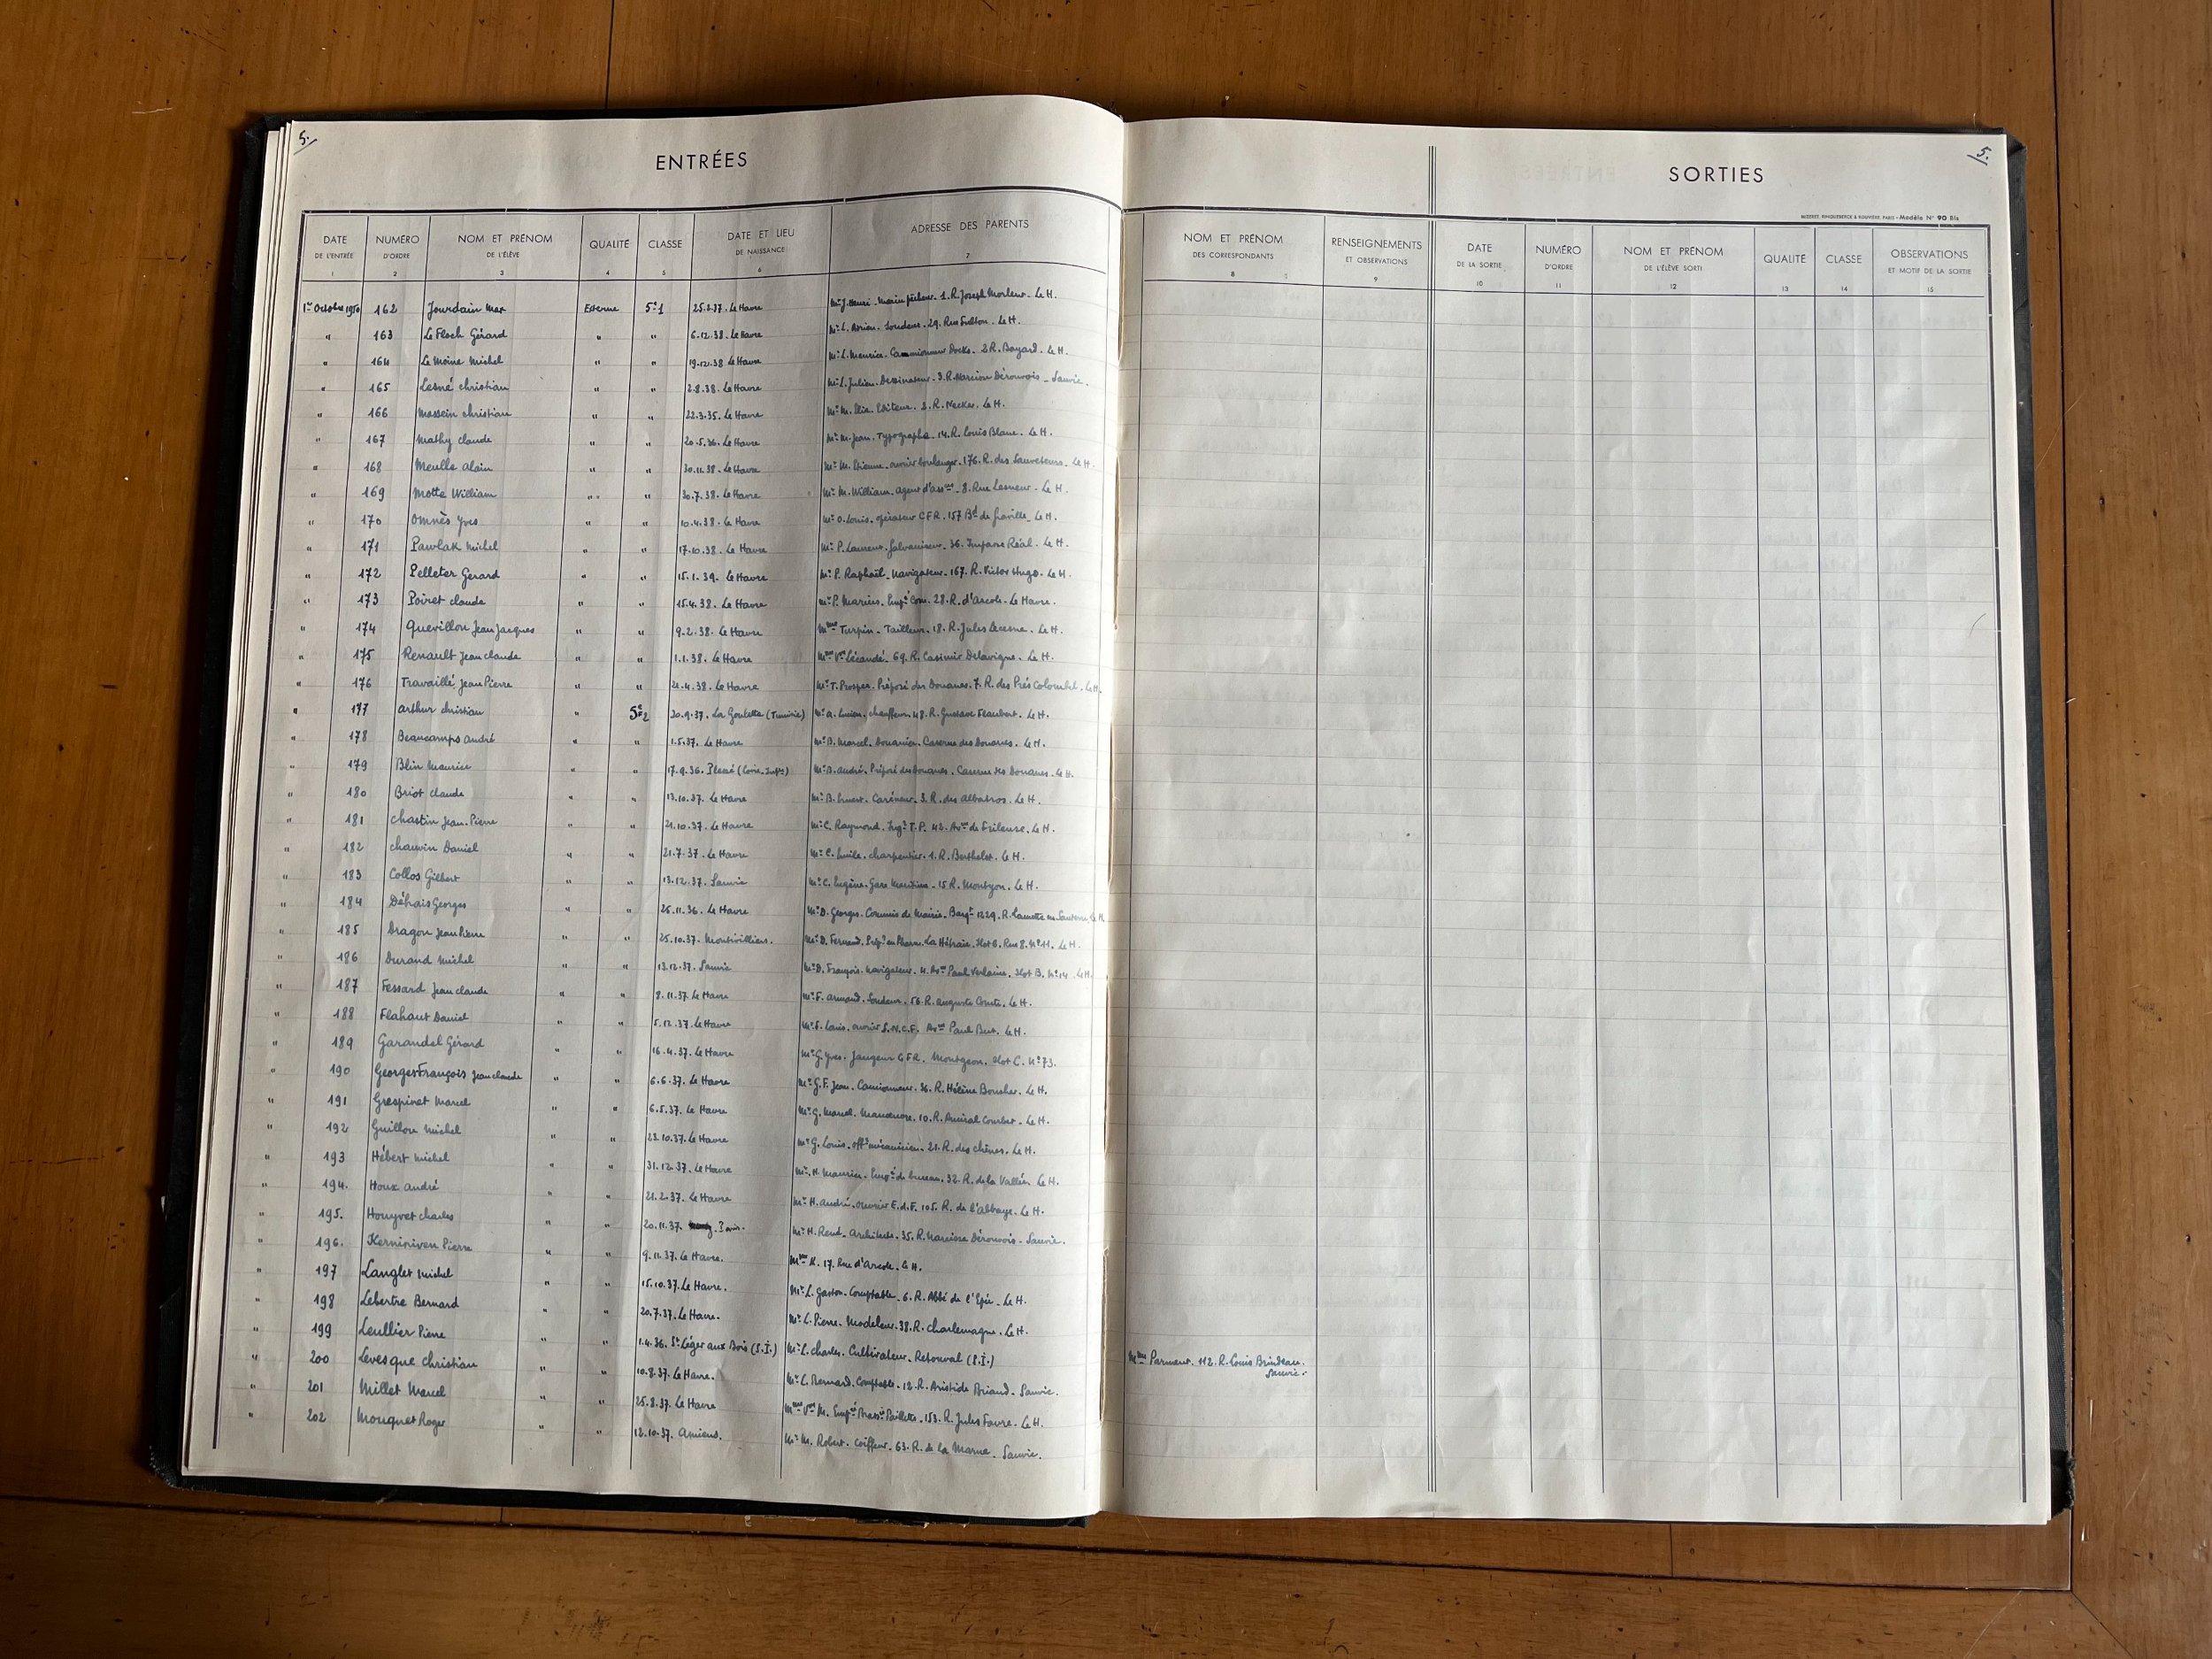 5.
ENTRÉES
DATE DE L'ENTRÉE 1 NUMÉRO D'ORDRE 2 NOM ET PRÉNOM DE L'ÉLÈVE 3 QUALITÉ 4 CLASSE 5 DATE ET LIEU DE NAISSANCE 6 ADRESSE DES PARENTS 7
1er Octobre 1950 162 Jourdain Max Externe 5e1 25.2.37. Le Havre Mr J. Henri. Marin pêcheur. 1. R. Joseph Morlent. Le H.
" 163 Le Floch Gérard " " 6.12.38. Le Havre Mr L. Adrien. Soudeur. 29. Rue Fulton. Le H.
" 164 Le Moine Michel " " 19.12.38 Le Havre Mr L. Maurice. Camionneur Docks. 2 R. Bayard. Le H.
" 165 Lesné christian " " 2.8.38. Le Havre Mr L. Julien. Dessinateur. 3. R. Dérouvois _ Sanvic.
" 166 Massein christian " " 22.3.35. Le Havre Mr M. R. Necker. Le H.
" 167 Mathy claude " " 20.5.36. Le Havre Mr M. Jean. Typographe. 14. R. Louis Blanc. Le H.
" 168 Meulle alain " " 30.11.38. Le Havre Mr M. Etienne. ouvrier boulanger. 176. R. des Sauveteurs. Le H.
" 169 Motte William " " 30.7.38. Le Havre Mr M. William. agent d'assces. 8. Rue Lesueur. Le H.
" 170 Omnès Yves " " 10.4.38. Le Havre Mr O. Louis. opérateur CFR. 157 Bd de Graville. Le H.
" 171 Pawlak Michel " " 17.10.38. Le Havre Mr P. Laurent. Galvaniseur. 36. Impasse Réal. Le H.
" 172 Pelleter Gérard " " 15.1.39. Le Havre Mr P. Raphaël. Navigateur. 167. R. Victor Hugo. Le H.
" 173 Poiret claude " " 15.4.38. Le Havre Mr P. Marius. Empé Com. 28. R. d'Arcole. Le Havre.
" 174 Quevillon Jean Jacques " " 9.2.38. Le Havre Mme Turpin. Tailleur. 18. R. Jules Lecesne. Le H.
" 175 Renault Jean claude " " 1.1.38. Le Havre Mme Vve Lécaudé. 69. R. Casimir Delavigne. Le H.
" 176 Travaillé Jean Pierre " " 21.4.38. Le Havre Mr T. Prosper. Préposé des Douanes. 7. R. des Prés Colombel. Le H.
" 177 arthur christian " 5e2 20.9.37. La Goulette (Tunisie) Mr A. Lucien. chauffeur. 48. R. Gustave Flaubert. Le H.
" 178 Beaucamps André " " 1.5.37. Le Havre Mr B. Marcel. Douanier. Caserne des Douanes. Le H.
" 179 Blin Maurice " " 17.9.36. Plessé (Loire. Infre) Mr B. André. Préposé des Douanes. Caserne des Douanes. Le H.
" 180 Briot claude " " 13.10.37. Le Havre Mr B. Ernest. Caréneur. 3. R. des Albatros. Le H.
" 181 chastin Jean. Pierre " " 21.10.37. Le Havre Mr C. Raymond. Ingr T.P. 42. Avue de Frileuse. Le H.
" 182 chauvin Daniel " " 21.7.37. Le Havre Mr C. Emile. charpentier. 1. R. Berthelot. Le H.
" 183 Collos Gilbert " " 13.12.37. Sanvic Mr C. Eugène. Gare Maritime. 15 R. Montyon. Le H.
" 184 Déhais Georges " " 26.11.36. Le Havre Mr D. Georges. Commis de Mairie. Baryt 1229. R. Lamotte Le H.
" 185 Dragon Jean Pierre " " 25.10.37. Montivilliers. Mr D. Fernand. Prépr en Pharm. La Hétraie. Ilot 6. Rue 8. No 11. Le H.
" 186 Durand Michel " " 13.12.37. Sanvic Mr D. François. Navigateur. Avue Paul Verlaine. Ilot B. No 14. Le H.
" 187 Fessard Jean claude " " 8.11.37. Le Havre Mr F. Armand. Soudeur. 56. R. Auguste Comte. Le H.
" 188 Flahaut Daniel " " 5.12.37. Le Havre Mr F. Louis. ouvrier S.N.C.F. Avue Paul Bert. Le H.
" 189 Garandel Gérard " " 16.4.37. Le Havre Mr G. Yves. Jaugeur CFR. Montgeon. Ilot C. No 73.
" 190 Georges François Jean claude " " 6.6.37. Le Havre Mr G.F. Jean. Camionneur. 36. R. Hélène Boucher. Le H.
" 191 Grespinet Marcel " " 6.5.37. Le Havre Mr G. Marcel. Manœuvre. 10. R. Amiral Courbet. Le H.
" 192 Guillou Michel " " 23.10.37. Le Havre Mr G. Louis. offr mécanicien. 21. R. des chênes. Le H.
" 193 Hébert Michel " " 31.12.37. Le Havre Mr H. Maurice. Empé de bureau. 32. R. de la Vallée. Le H.
" 194. Houx André " " 21.2.37. Le Havre Mr H. André. ouvrier E.d.F. 105. R. de l'abbaye. Le H.
" 195. Houyvet charles " " 20.11.37. Paris. Mr H. René. Architecte. 35. R. Narcisse Dérouvois. Sanvic.
" 196. Pierre " " 9.11.37. Le Havre. Mme K. 17. Rue d'Arcole. Le H.
" 197 Langlet Michel " " 15.10.37. Le Havre. Mr L. Gaston. Comptable. 6. R. Abbé de l'Epée. Le H.
" 198 Lebertre Bernard " " 20.7.37. Le Havre. Mr L. Pierre. Modeleur. 38. R. Charlemagne. Le H.
" 199 Leullier Pierre " " 1.4.36. St Léger aux Bois (S.I.) Mr L. charles. Cultivateur. Retonval (S.I.)
" 200 Levesque christian " " 10.8.37. Le Havre. Mr L. Bernard. Comptable. 12. R. Aristide Briand. Sanvic.
" 201 Millet Marcel " " 25.8.37. Le Havre Mme Vve M. Empée Brasie Paillette. 153. R. Jules Favre. Le H.
" 202 Mouquet Roger " " 12.10.37. Amiens. Mr M. Robert. Coiffeur. 63. R. de la Marne. Sanvic.
5.
SORTIES
MODÈLE N° 90 Bis
NOM ET PRÉNOM DES CORRESPONDANTS 8 RENSEIGNEMENTS ET OBSERVATIONS 9 DATE DE LA SORTIE 10 NUMÉRO D'ORDRE 11 NOM ET PRÉNOM DE L'ÉLÈVE SORTI 12 QUALITÉ 13 CLASSE 14 OBSERVATIONS ET MOTIF DE LA SORTIE 15
Mme 112. R. Louis Brindeau.
Sanvic.